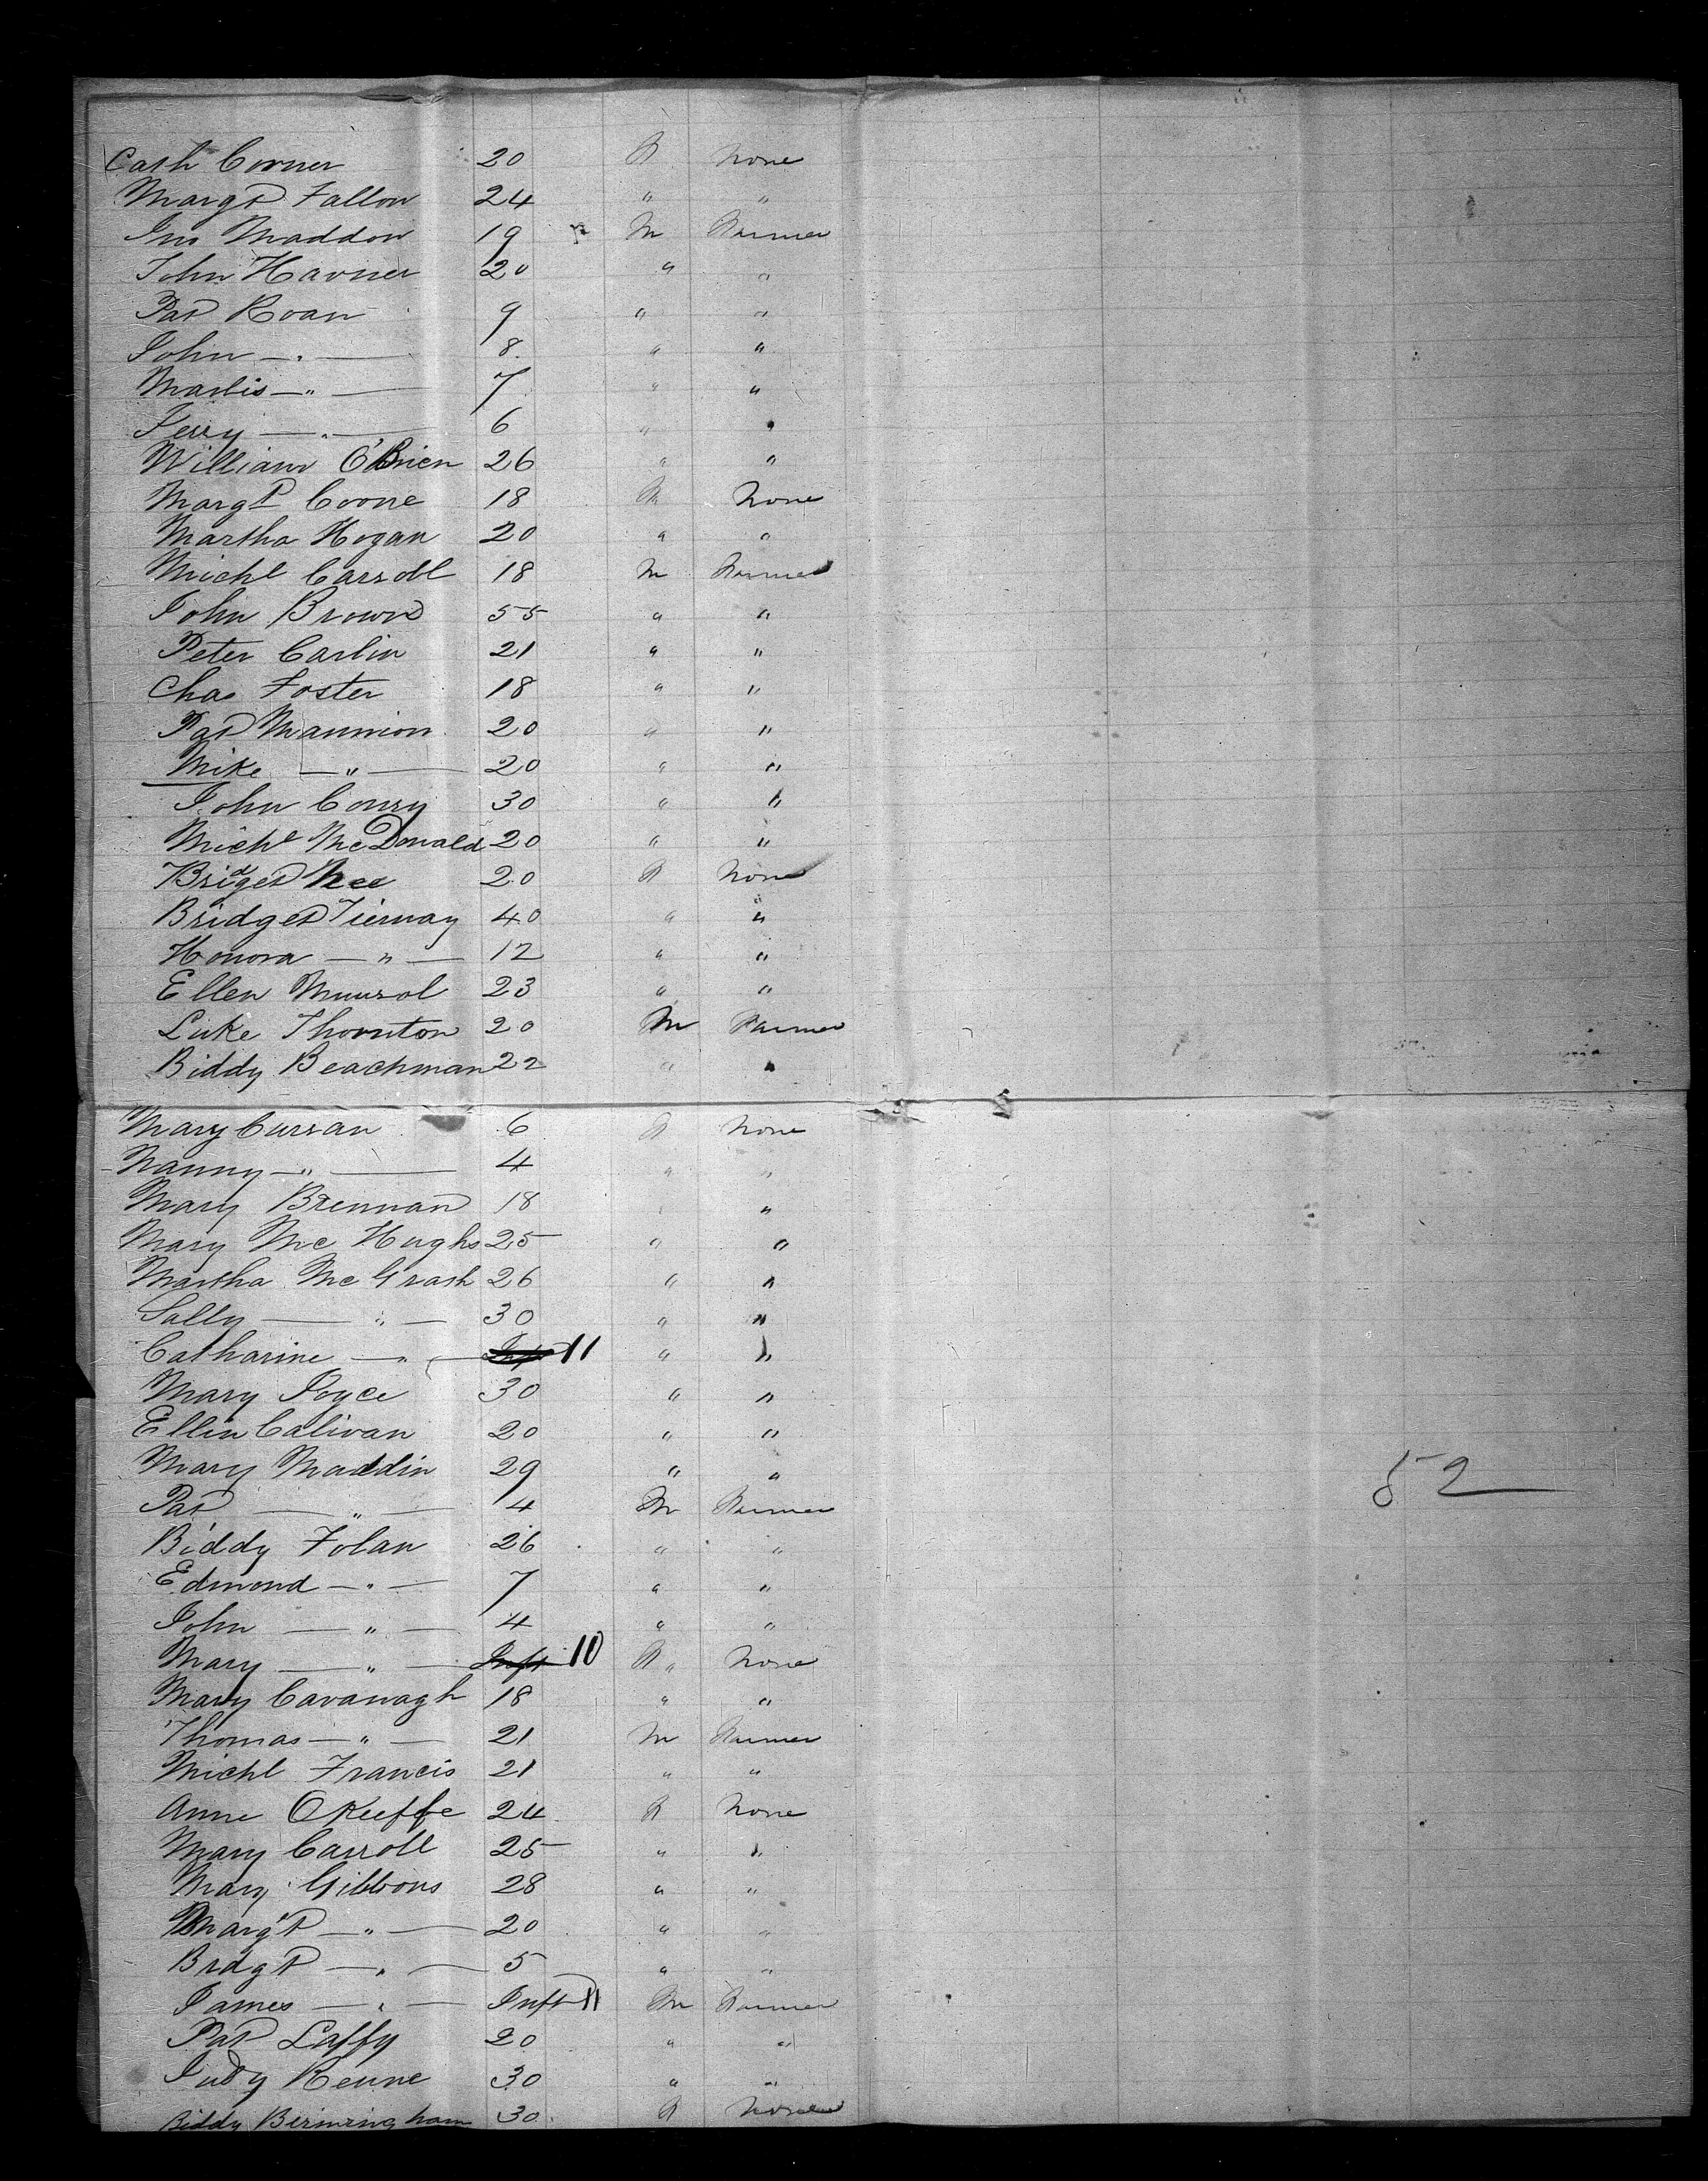 Cath Corner 20 F None
Margt Fallon 24 " "
Jno Maddon 19 M Farmer
John Havner 20 " "
Pat Roan 9 " "
John — " — 8 " "
— " — 7 " "
Jerry — " — 6 " "
William O'Brien 26 " "
Margt Coone 18 None
Martha Hogan 20 " "
Michl Carroll 18 M Farmer
John Brown 55 " "
Peter Carlin 21 " "
Chas Foster 18 " "
Pat Mannion 20 " "
Mike — " — 20 " "
John Conry 30 " "
Michl McDonald 20 " "
Bridget Nee 20 F None
Bridget Tiernay 40 " "
Honora — " — 12 " "
Ellen 23 " "
Luke Thornton 20 M Farmer
Biddy Beachman 22 " "
Mary Curran 6 F None
Nanny — " — 4 " "
Mary Brennan 18 " "
Mary McHughs 25 " "
Martha McGrath 26 " "
Sally — " — 30 " "
Catharine — " — Inft 11 " "
Mary Joyce 30 " "
Ellin Calivan 20 " "
Mary Maddin 29 " "
Pat — " — 4 M Farmer
Biddy Folan 26 " "
Edmond — " — 7 " "
John — " — 4 " "
Mary — " — Inft 10 F " None
Mary Cavanagh 18 " "
Thomas — " — 21 M Farmer
Michl Francis 21 " "
Anne OKeeffe 24 F None
Mary Carroll 25 " "
Mary Gibbons 28 " "
Margt — " — 20 " "
Bridgt — " — 5 " "
James — " — Inft 11 M Farmer
Pat Laffy 20 " "
Judy Keune 30 " "
Biddy Birmingham 30 F None
52